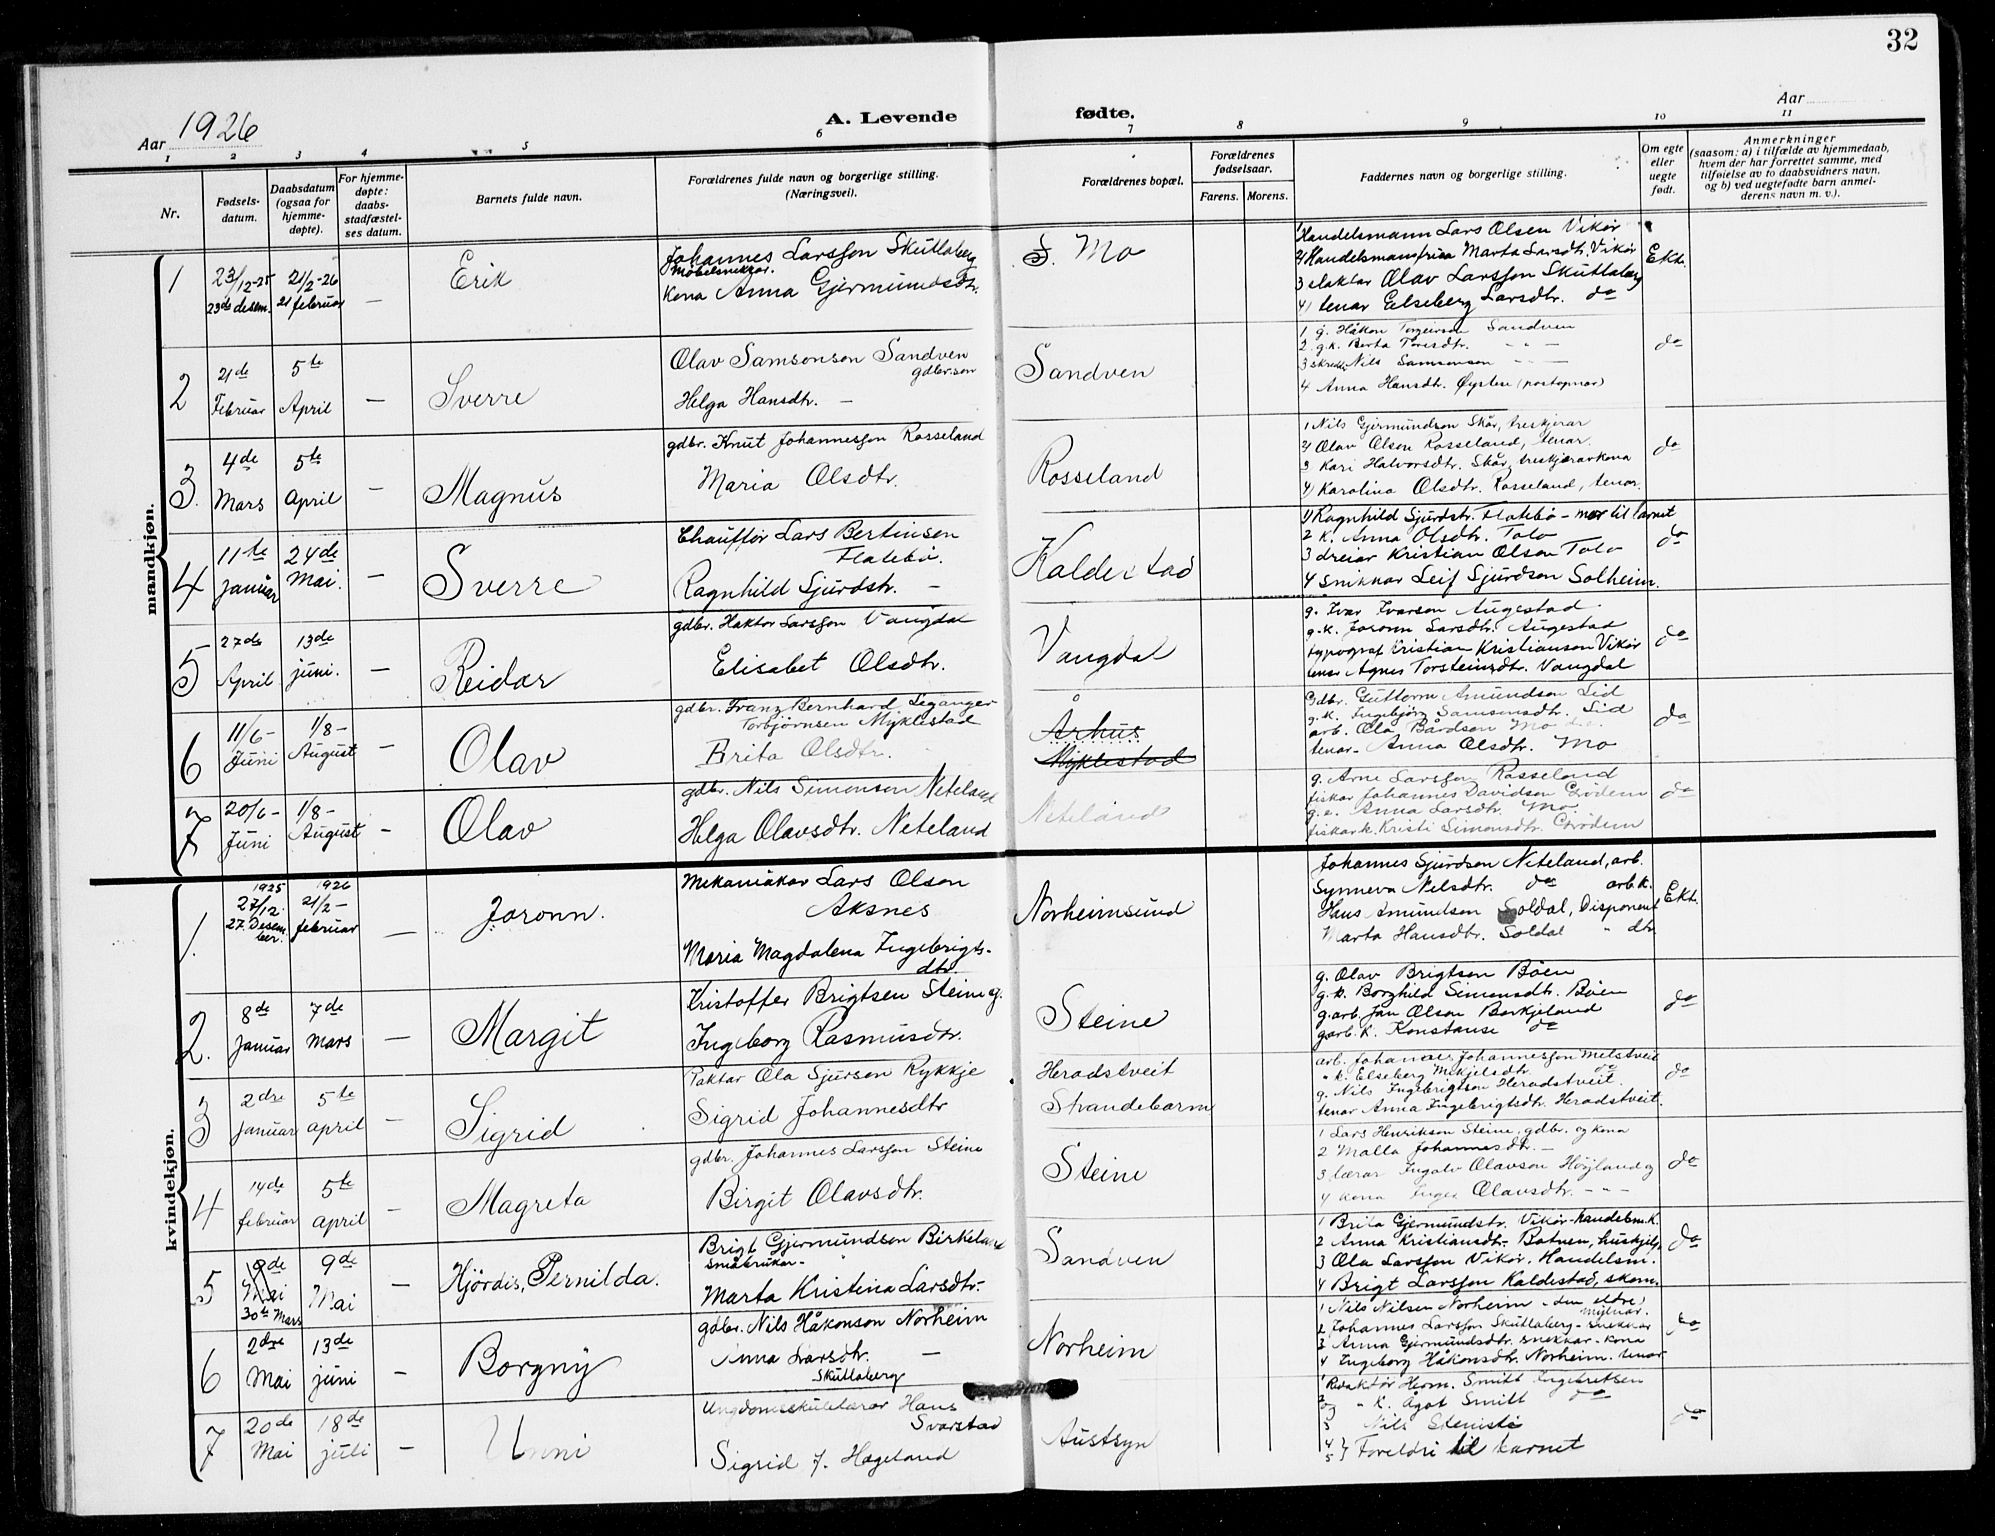 32
Aar 1926
A. Levende fødte.
Aar
1 2 3 4 5 6 7 8 9 10 11
Nr.
Fødsels-
datum.
Daabsdatum
(ogsaa for
hjemme-
døpte).
For hjemme-
døpte:
daabs-
stadfæstel-
ses datum.
Barnets fulde navn.
Forældrenes fulde navn og borgerlige stilling.
(Næringsveil).
Forældrenes bopæl.
Forældrenes
fødselsaar.
Farens. Morens.
Faddernes navn og borgerlige stilling.
Om egte
eller
uegte
født.
Anmerkninger
(saasom: a) i tilfælde av hjemmedaab,
hvem der har forrettet samme, med
tilføielse av to daabsvidners navn,
og b) ved uegtefødte barn anmel-
derens navn m. v.).
mandkjøn.
1
23/12-25
23de desem.
21/2-26
21 februar
—
Erik
Johannes Larsson Skutlaberg
Møbelsnekkar.
Kona Anna Gjermundsdtr.
S. Mo
1 Handelsmann Lars Olsen Vikør
2) Handelsmansfrua Marta Larsdtr. Vikør
3 slaktar Olav Larsson Skutlaberg
4) tenar Elseberg Larsdtr. do
Ekt.
2
21de
Februar
5te
April
—
Sverre
Olav Samsonson Sandven
gdbr.son
Helga Hansdtr. —
Sandven
1 g. Håkon Torgeirson Sandven
2 g.k. Berta Toresdtr. - - -
3 skredd. Nils Samsonson - - -
4 Anna Hansdtr. Øystese (postopnar)
do
3.
4de
Mars
5te
April
—
Magnus
gdbr. Knut Johannesson Rosseland
Maria Olsdtr.
Rosseland
1 Nils Gjermundson Skår, treskjerar
2) Olav Olsen Rosseland, tenar.
3 Kari Halvorsdtr. Skår, treskjerarkona
4) Karolina Olsdtr. Rosseland, tenar.
do
4
11te
januar
24de
Mai.
—
Sverre
Chauffør Lars Bertinsen
Flatebø.
Ragnhild Sjurdstr. —
Kaldestad
1) Ragnhild Sjurdstr. Flatebø - mor til barnet
2 k. Anna Olsdtr. Tolo
3 dreiar Kristian Olson Tolo
4 snikkar Leif Sjurdson Solheim.
do
5
27de
April
13de
juni.
—
Reidar
gdbr. Haktor Larsson Vangdal
Elisabet Olsdtr.
Vangdal
g. Ivar Ivarson Augestad
g.k. Joronn Larsdtr. Augestad
typograf Kristian Kristianson Vikør
tenar Agnes Torsteinsdtr. Vangdal
do
6
11/6-
Juni
1/8-
August
—
Olav
gdbr. Franz Bernhard Leganger
Torbjørnsen Myklestad
Brita Olsdtr.
Århus
Myklestad
Gdbr. Guttorm Amundson Lid
g.k. Ingebjørg Samsonsdtr. Lid
arb. Ola Bårdson Mo
tenar - Anna Olsdtr. Mo
do
7
20/6-
Juni
1/8-
August
—
Olav
gdbr. Nils Simonson Neteland
Helga Olavsdtr. Neteland
Neteland
g. Arne Larsson Rosseland
fiskar Johannes Davidson Grødem
g.e. Anna Larsdtr. Mo
fiskark. Kristi Simonsdtr. Grødem
do
kvindekjøn.
1.
1925
27/12.
27. Desem-
ber.
1926
21/2-
februar
—
Joronn.
Mekanikar Lars Olson
Aksnes
Maria Magdalena Ingebrigts-
dtr.
Norheimsund
Johannes Sjurdson Neteland, arb.
Synneva Nelsdtr. do arb.k.
Hans Amundson Soldal, Disponent
Marta Hansdtr. Soldal " dtr.
Ekt.
2.
8de
januar
7de
Mars
—
Margit
Kristoffer Brigtsen Steine g.
Ingeborg Rasmusdtr.
Steine
g. Olav Brigtson Bøen
g.k. Borghild Simonsdtr. Bøen
g.arb. Jon Olson Borkjeland
garb. k. Konstanse do
do
3
2dre
januar
5te
april
—
Sigrid
Paktar Ola Sjurson Rykkje
Sigrid Johannesdtr
Heradstveit
Strandebarm
arb. Johannes Johannesson Melstveit
" k. Elseberg Mikjelsdtr. do
g. Nils Ingebrigtson Heradstveit.
tenar Anna Ingebrigtsdtr. Heradstveit.
do
4
14de
februar
5te
april
—
Magreta
gdbr. Johannes Larsson Steine
Birgit Olavsdtr.
Steine
1 Lars Henrikson Steine, gdbr. og kona
2 Malla Johannesdtr. —
3 lærar Ingalv Olavson Høyland og
4 kona Inger Olavsdtr. - - -
do
5
9de
Mai
30te Mars
9de
Mai
—
Hjördis, Pernilda.
Brigt Gjermundson Birkeland
småbrukar-
Marta Kristina Larsdtr.
Sandven
1 Brita Gjermundstr. Vikør - handelsm.k.
2 Anna Kristiansdtr. Botnen, huskjelp
3 Ola Larsson Vikør, Handelsm.
4 Brigt Larsson Kaldestad, skom.
do
6
2dre
Mai
13de
juni
—
Borgny
gdbr. Nils Håkonson Norheim
Anna Larsdtr. —
Skutlaberg
Norheim
1 Nils Nilsen Norheim - den eldre)
mylnar.
2 Johannes Larsson Skutlaberg - snekkar
3 Anna Gjermundsdtr. snekkar-kona
4 Ingeborg Håkonsdtr. Norheim. tenar
do
7
20de
Mai
18de
juli
—
Unni
Ungdomsskulelærar Hans
Svarstad
Sigrid J. Hægeland
Austsyn
1 Redaktør Herm. Smitt Ingebretsen
2 " k. Ågot Smitt do
og
3 Nils Stenistø
4
5 } Foreldri til barnet
do